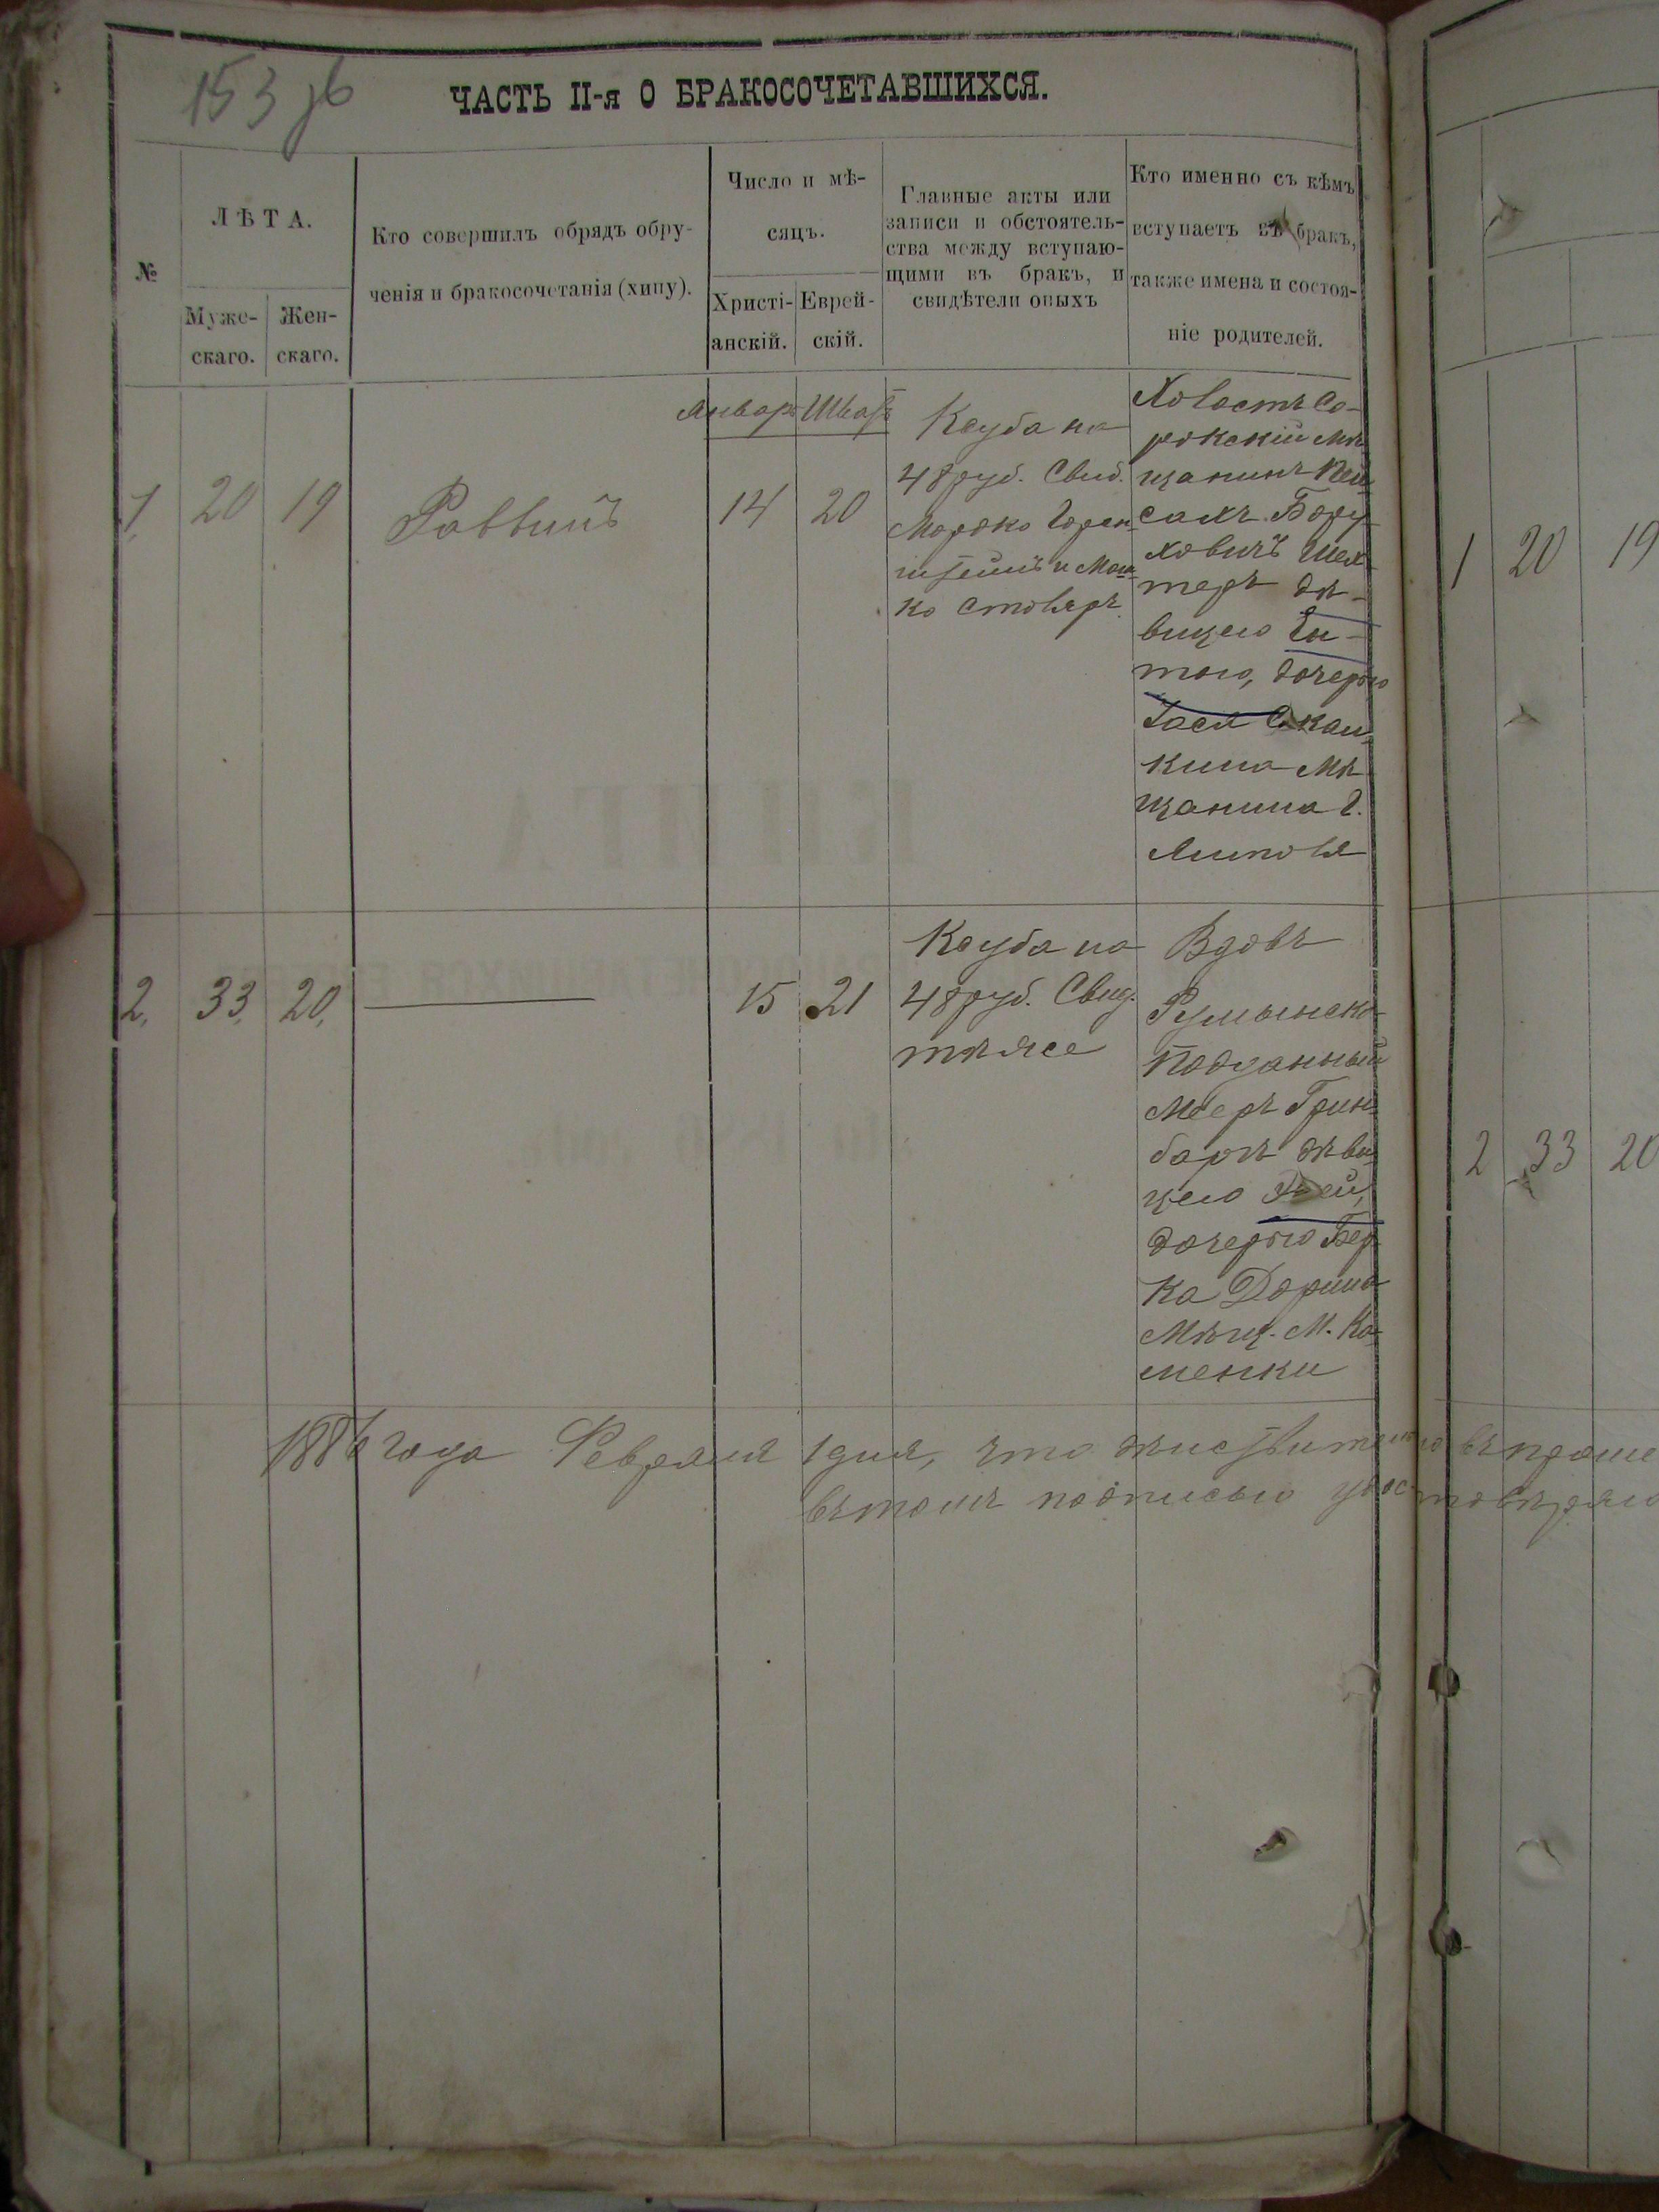 153 зв
ЧАСТЬ II-я О БРАКОСОЧЕТАВШИХСЯ.
№
ЛѢТА.
Муже-
скаго.
Жен-
скаго.
Кто совершилъ обрядъ обру-
ченія и бракосочетанія (хипу).
Число и мѣ-
сяцъ.
Христі-
анскій.
Еврей-
скій.
Главные акты или
записи и обстоятель-
ства между вступаю-
щими въ бракъ, и
свидѣтели оныхъ
Кто именно съ кѣмъ
вступаетъ въ бракъ,
также имена и состоя-
ніе родителей.
1,
20
19
Раввинъ
Январ
Шват
14
20
Ксуба на
48 руб. Свид.
Мордко
и Мош
ко Столяръ
Холостъ Со-
рокскій мѣ
щанинъ Пей
сахъ Бору
ховичъ
дѣ-
вицею Ен-
тою, дочерью
кина мѣ
щанина г.
2,
33,
20,
15
21
Ксуба на
48 руб. Свид.
тѣ же
Вдовъ
Румынско
подданный
Мееръ Грин
баргъ дѣви
цею
дочерью Бер
ка Дорина
мѣщ. м. Ка
менки
1886 года Февраля 1 дня, что дѣйствительно въ проше
въ томъ подписью удостовѣряю
1
20
19
2
33
20